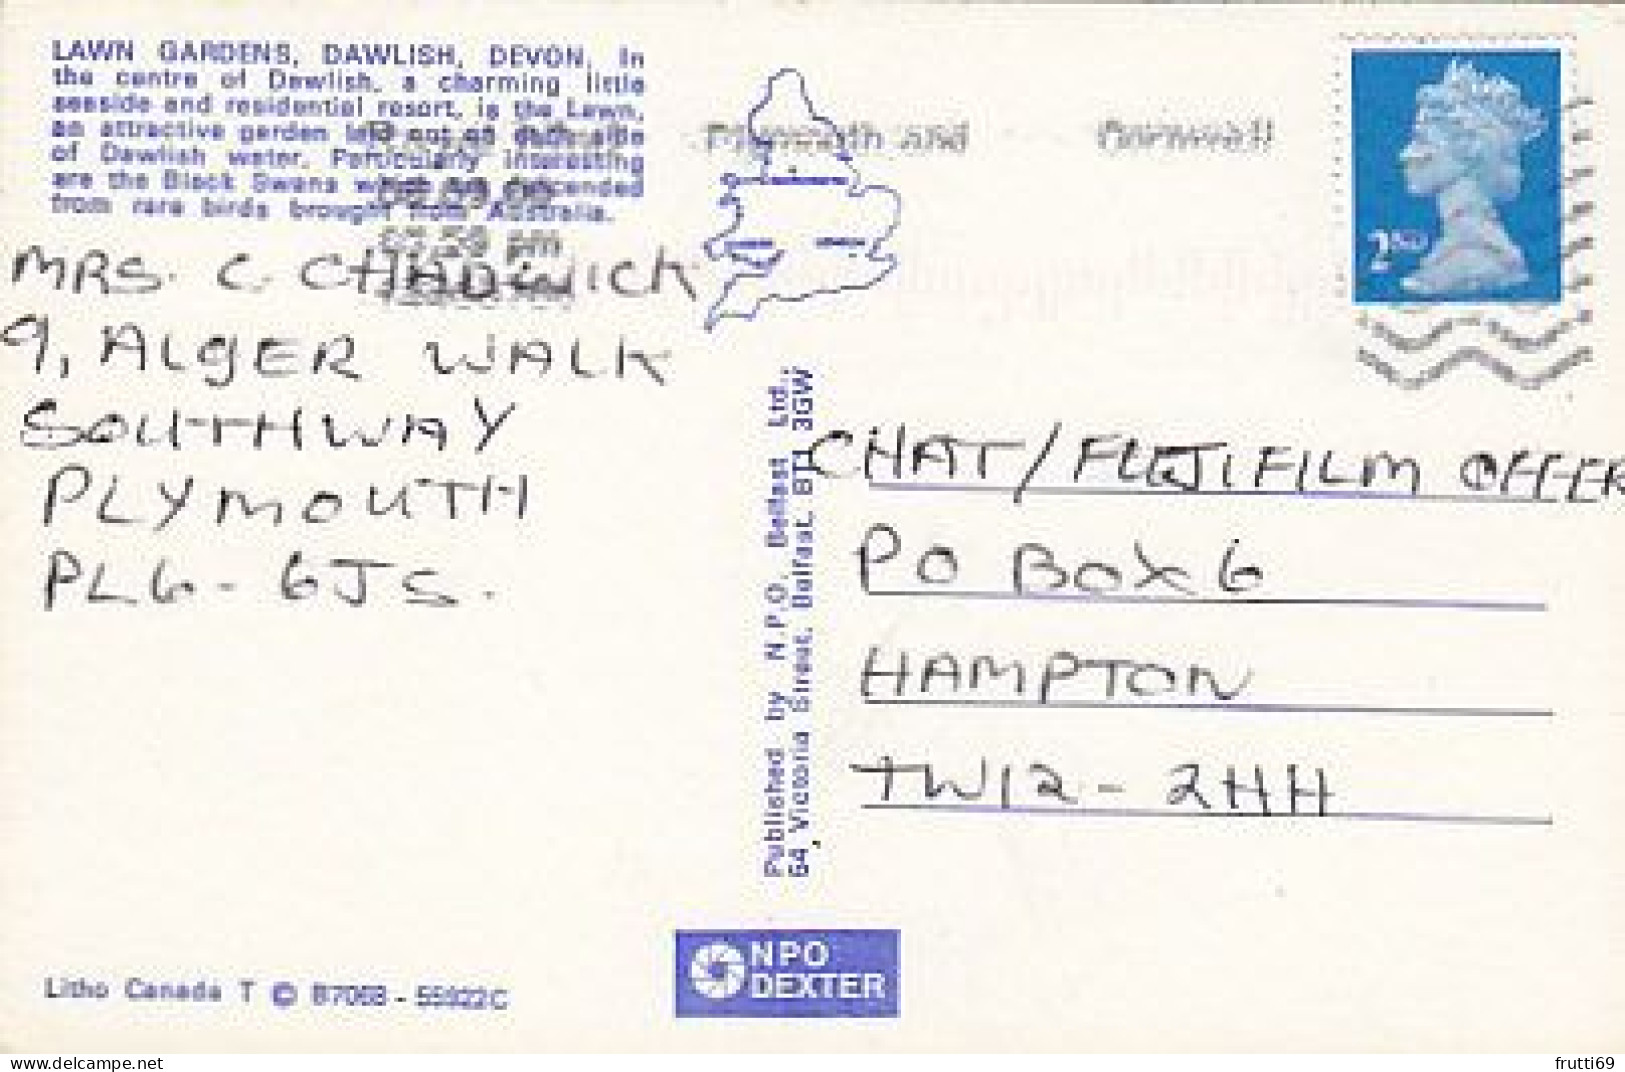 LAWN GARDENS, DAWLISH, DEVON. In
the centre of Dawlish, a charming little
seaside and residential resort, is the Lawn,
an attractive garden laid out on each side
of Dawlish water. Particularly interesting
are the Black Swans which are descended
from rare birds brought from Australia.
Plymouth and Cornwall
pm
2ND
MRS. C. CHADWICK
9, ALGER WALK
SOUTHWAY
PLYMOUTH
PL6 - 6JS.
CHAT / FUJIFILM OFFER
PO BOX 6
HAMPTON
TW12 - 2HH
Published by N.P.O. Belfast Ltd.,
64, Victoria Street, Belfast, BT1 3GW
NPO
DEXTER
Litho Canada T © B7068 - 55922C
delcampe.net
frutti69